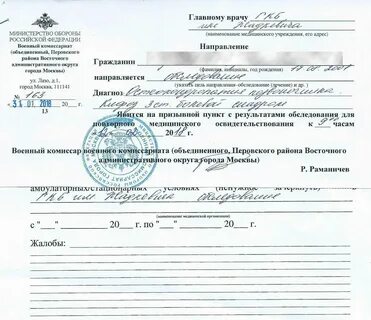 МИНИСТЕРСТВО ОБОРОНЫ
РОССИЙСКОЙ ФЕДЕРАЦИИ
Военный комиссариат
(объединенный, Перовского
района Восточного
административного округа
города Москвы)
ул. Лазо, д.1,
город Москва, 111141
№ 163
31 01 2018
13
Главному врачу ГКБ
им Жадкевича
(наименование медицинского учреждения, его адрес)
Направление
Гражданин
(фамилия, инициалы, год рождения)
направляется обследование
(указать цель направления - обследование (лечение) и др.)
Диагноз Остеохондропатия позвоночника.
Кифоз 3 ст. болевой синдром
Явится на призывной пункт с результатами обследования для
повторного медицинского освидетельствования к часам
20 г.
Военный комиссар военного комиссариата (объединенного, Перовского района Восточного
административного округа города Москвы)
Р. Раманичев
амбулаторных/стационарных условиях (ненужное зачеркнуть) в
ГКБ им Жадкевича обследование
(наименование медицинской организации)
с "___" ______ 20___ г. по "___" ______ 20___ г.
Жалобы: